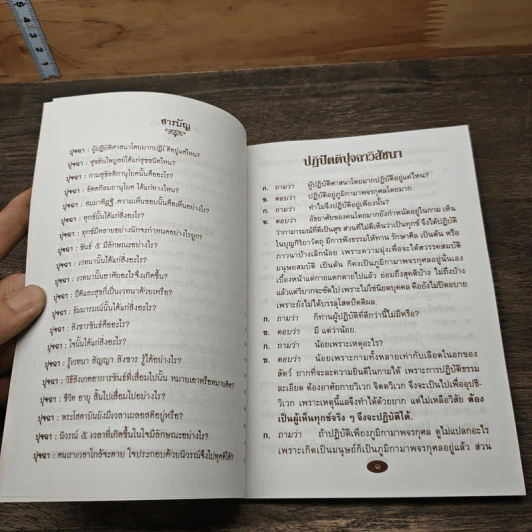 สารบัญ
ปุจฉา : ผู้ปฏิบัติศาสนาโดยมากปฏิบัติอยู่แค่ไหน?
ปุจฉา : สุขอันไพบูลย์ได้แก่สุขชนิดไหน?
ปุจฉา : กามสุขัลลิกานุโยคนั้นคืออะไร?
ปุจฉา : อัตตกิลมถานุโยค ได้แก่ทางไหน?
ปุจฉา : สัมมาทิฏฐิ ความเห็นชอบนั้นคือเห็นอย่างไร?
ปุจฉา : ทุกข์นั้นได้แก่สิ่งอะไร?
ปุจฉา : ทุกข์มีหลายอย่างนักจะกำหนดอย่างไรถูก?
ปุจฉา : ขันธ์ ๕ มีลักษณะอย่างไร?
ปุจฉา : เวทนานั้นได้แก่สิ่งอะไร?
ปุจฉา : เวทนานั้นอาศัยอะไรจึงเกิดขึ้น?
ปุจฉา : ปีติและสุขก็เป็นเวทนาด้วยหรือ?
ปุจฉา : ธัมมารมณ์นั้นได้แก่สิ่งอะไร?
ปุจฉา : สังขารขันธ์คืออะไร?
ปุจฉา : ใจนั้นได้แก่สิ่งอะไร?
ปุจฉา : รู้เวทนา สัญญา สังขาร รู้ได้อย่างไร?
ปุจฉา : วิธีสังเกตอาการขันธ์ที่เสื่อมไปนั้น หมายเอาหรือหมายคิด?
ปุจฉา : ชีวิต อายุ สิ้นไปเสื่อมไปอย่างไร?
ปุจฉา : พระโสดาบันยังมีเวลาเผลอสติอยู่หรือ?
ปุจฉา : นิวรณ์ ๕ เวลาที่เกิดขึ้นในใจมีลักษณะอย่างไร?
ปุจฉา : คนเราเวลาใกล้จะตาย ใจประกอบด้วยนิวรณ์จึงไปทุคติได้?
ปฏิปัตติปุจฉาวิสัชนา
ก. ถามว่า ผู้ปฏิบัติศาสนาโดยมากปฏิบัติอยู่แค่ไหน?
ข. ตอบว่า ปฏิบัติอยู่ภูมิกามาพจรกุศลโดยมาก.
ก. ถามว่า ทำไมจึงปฏิบัติอยู่เพียงนั้น?
ข. ตอบว่า อัธยาศัยของคนโดยมากยังกำหนัดอยู่ในกาม เห็น
ว่ากามารมณ์ที่ดีเป็นสุข ส่วนที่ไม่ดีเห็นว่าเป็นทุกข์ จึงได้ปฏิบัติ
ในบุญกิริยาวัตถุ มีการฟังธรรมให้ทาน รักษาศีล เป็นต้น หรือ
ภาวนาบ้างเล็กน้อย เพราะความมุ่งเพื่อจะได้สวรรคสมบัติ
มนุษยสมบัติ เป็นต้น ก็คงเป็นภูมิกามาพจรกุศลอยู่นั่นเอง
เบื้องหน้าแต่กายแตกตายไปแล้ว ย่อมถึงสุคติบ้าง ไม่ถึงบ้าง
แล้วแต่วิบากจะซัดไป เพราะไม่ใช่นิยตบุคคล คือยังไม่ปิดอบาย
เพราะยังไม่ได้บรรลุโสดาปัตติผล.
ก. ถามว่า ก็ท่านผู้ปฏิบัติที่ดีกว่านี้ไม่มีหรือ?
ข. ตอบว่า มี แต่ว่าน้อย.
ก. ถามว่า น้อยเพราะเหตุอะไร?
ข. ตอบว่า น้อยเพราะกามทั้งหลายเท่ากับเลือดในอกของ
สัตว์ ยากที่จะละความยินดีในกามได้ เพราะการปฏิบัติธรรม
ละเอียด ต้องอาศัยกายวิเวก จิตตวิเวก จึงจะเป็นไปเพื่ออุปธิ-
วิเวก เพราะเหตุนี้แลจึงทำได้ด้วยยาก แต่ไม่เหลือวิสัย ต้อง
เป็นผู้เห็นทุกข์จริง ๆ จึงจะปฏิบัติได้.
ก. ถามว่า ถ้าปฏิบัติเพียงภูมิกามาพจรกุศล ดูไม่แปลกอะไร
เพราะเกิดเป็นมนุษย์ก็เป็นภูมิกามาพจรกุศลอยู่แล้ว ส่วน
๑